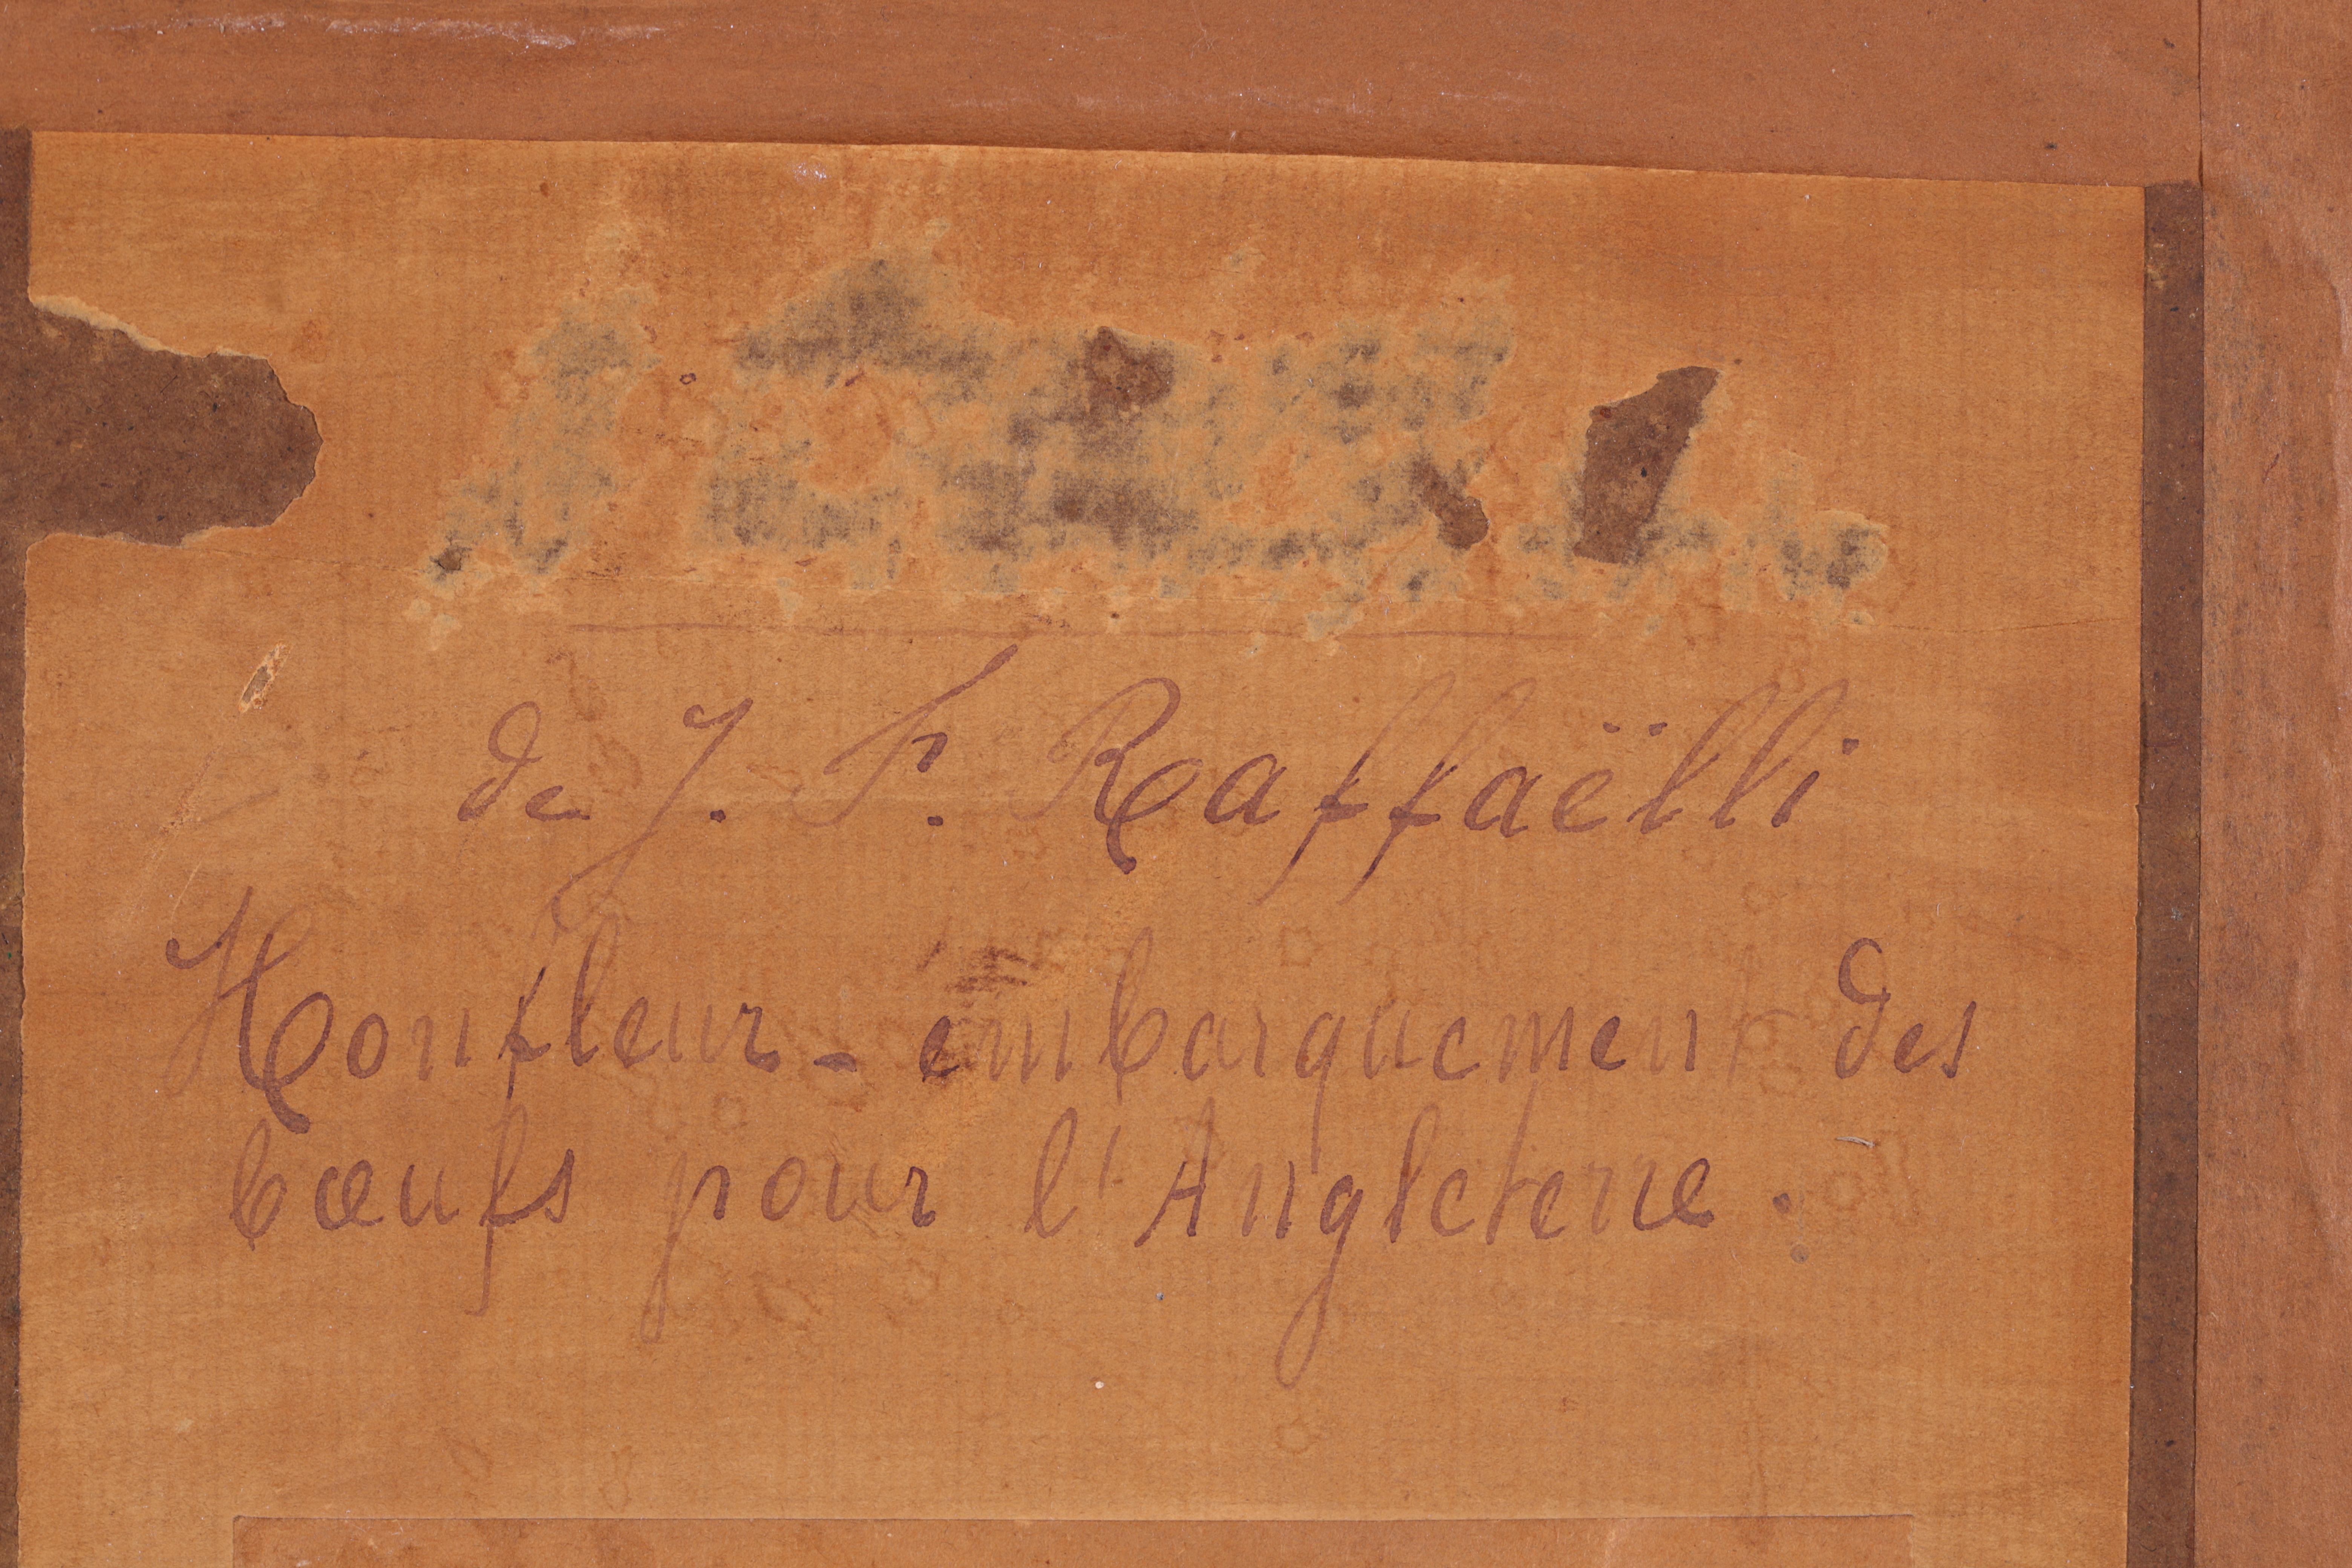 de J. F. Raffaëlli
Honfleur - embarquement des
bœufs pour l'Angleterre.